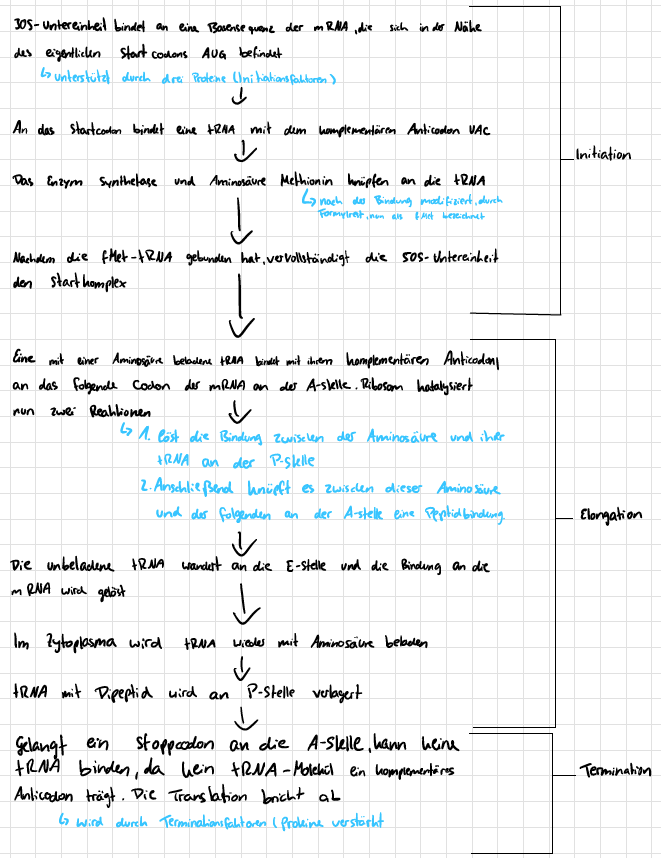 30S-Untereinheit bindet an eine Basensequenz der mRNA, die sich in der Nähe
des eigentlichen Startcodons AUG befindet
↳ unterstützt durch drei Proteine (Initiationsfaktoren)
An das Startcodon bindet eine tRNA mit dem komplementären Anticodon UAC
Das Enzym Synthetase und Aminosäure Methionin knüpfen an die tRNA
↳ nach der Bindung modifiziert, durch
Formylrest, nun als fMet bezeichnet
Nachdem die fMet-tRNA gebunden hat, vervollständigt die 50S-Untereinheit
den Startkomplex
Initiation
Eine mit einer Aminosäure beladene tRNA bindet mit ihrem komplementären Anticodon,
an das folgende Codon der mRNA an der A-Stelle. Ribosom katalysiert
nun zwei Reaktionen
↳ 1. löst die Bindung zwischen der Aminosäure und ihrer
tRNA an der P-Stelle
2. Anschließend knüpft es zwischen dieser Aminosäure
und der folgenden an der A-Stelle eine Peptidbindung.
Die unbeladene tRNA wandert an die E-Stelle und die Bindung an die
mRNA wird gelöst
Im Zytoplasma wird tRNA wieder mit Aminosäure beladen
tRNA mit Dipeptid wird an P-Stelle verlagert
Elongation
Gelangt ein Stoppcodon an die A-Stelle, kann keine
tRNA binden, da kein tRNA-Molekül ein komplementäres
Anticodon trägt. Die Translation bricht ab
↳ wird durch Terminationsfaktoren (Proteine verstärkt
Termination